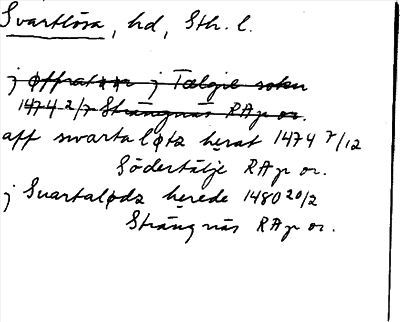 Svartlösa, hd, Sth. l.
j Offrat j Tælgie sokn
1474 2/7 Strängnäs RAp or.
aff swartaløtz hærat 1474 7/12
Södertälje RAp or.
j Suartaløsa herede 1480 20/2
Strängnäs RAp or.